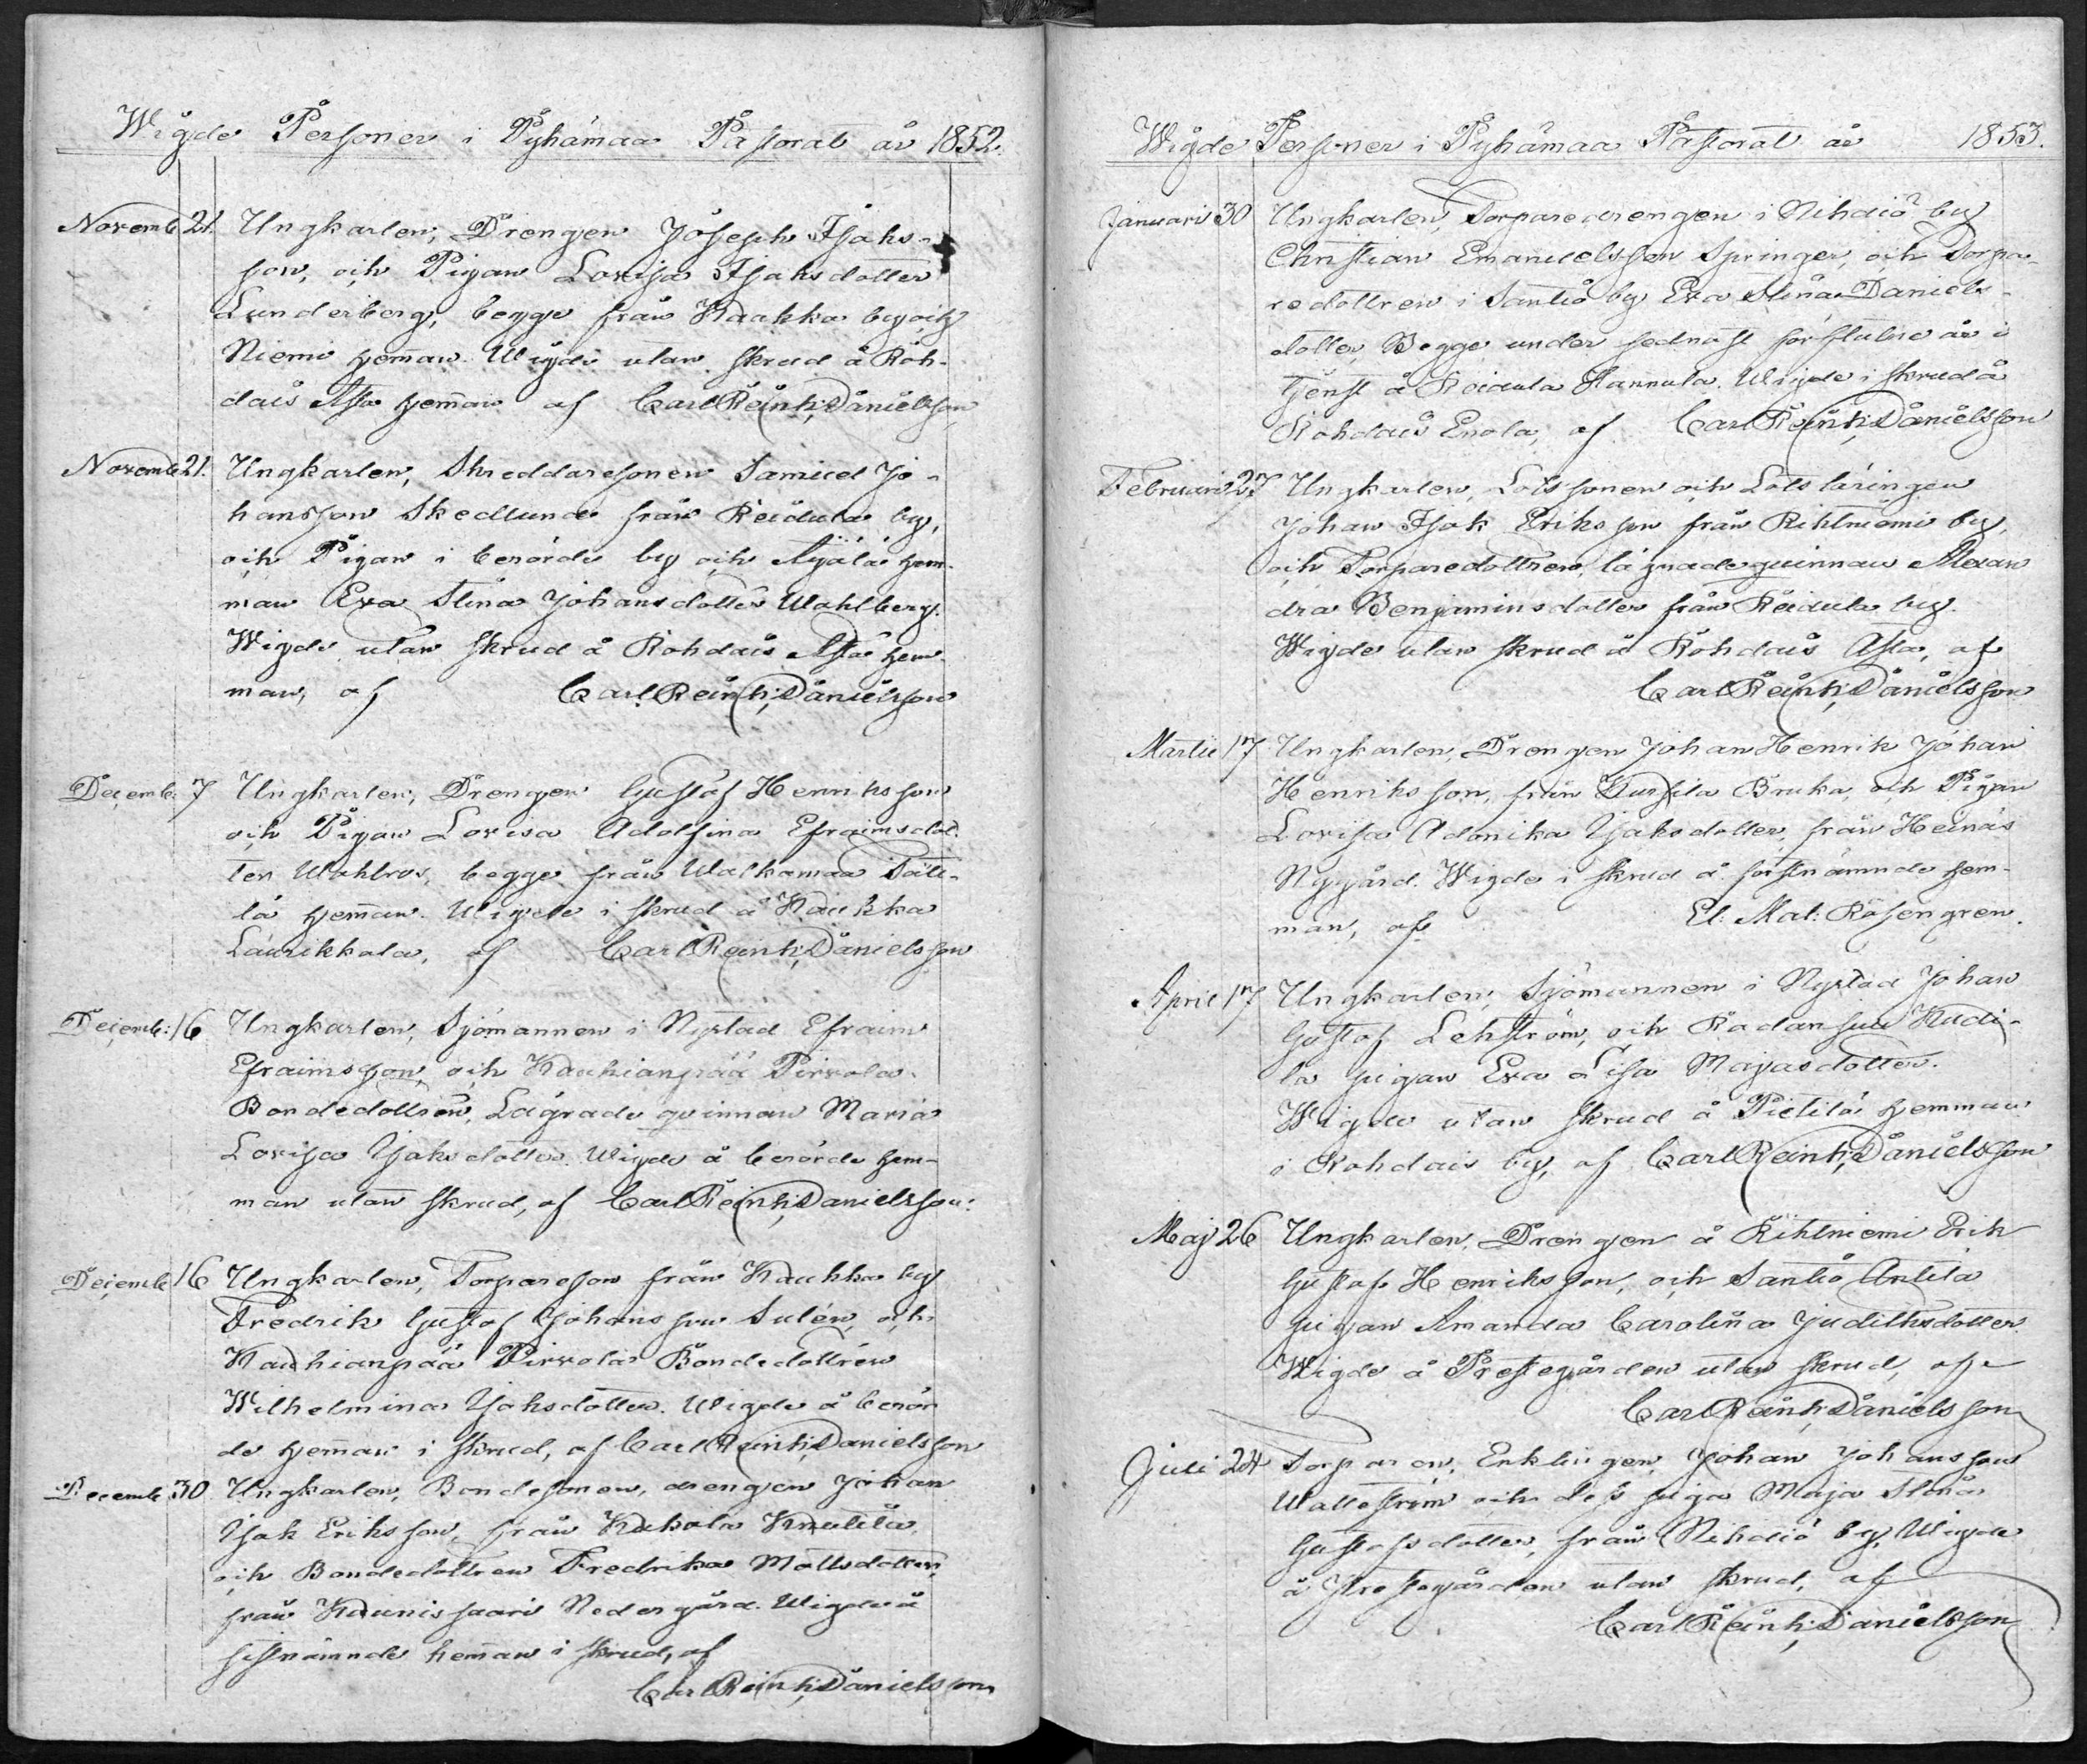 Wigde Personer i Pyhämaa Pastorat år 1852.
Novemb 21. Ungkarlen, Drengen Joseph Isaks-
son, och Pigan Lovisa Isaksdotter
Lunderberg, begge från Kaukka by och
Niemi heman. Wigde utan skrud å Roh-
dais Asta heman af Carl Reinh. Danielsson
Novemb 21. Ungkarlen, Skreddaresonen Samuel Jo-
hansson Skedlund från Reidula by,
och Pigan i berörde by och Äyälä hem-
man Eva Stina Johansdotter Wahlberg.
Wigde utan skrud å Rohdais Asta hem-
man, af Carl Reinh. Danielsson
Decemb. 7 Ungkarlen, Drengen Gustaf Henriksson
och Pigan Lovisa Adolfina Efraimsdot-
ter Wahlros, begge från Walkamaa Täti-
lä heman. Wigde i skrud å Kaukka
Laurikkala, af Carl Reinh. Danielsson
Decemb: 16 Ungkarlen, Sjömannen i Nystad Efraim
Efraimsson, och Kauhianpää Pirvola
Bondedottren, Lägrade qvinnan Maria
Lovisa Isaksdotter. Wigde å berörde hem-
man utan skrud, af Carl Reinh. Danielsson.
Decemb 16 Ungkarlen, Torpareson från Kaukka by
Fredrik Gustaf Johansson Sulén, och
Kauhianpää Pirvola Bondedottren
Wilhelmina Isaksdotter. Wigde å berör
de heman i skrud, af Carl Reinh. Danielsson
Decemb 30 Ungkarlen, Bondesonen, drengen Johan
Isak Eriksson från Kukola Knutila,
och Bondedottren Fredrika Mattsdotter
från Kaunissaari Nedergård. Wigde å
sistnämnde heman i skrud, af
Carl Reinh. Danielsson
Wigde Personer i Pyhämaa Pastorat år 1853.
Januari 30 Ungkarlen, Torparedrengen i Nihdiö by
Christian Emanuelsson Springer, och Torpa-
redottren i Santio by Eva Stina Daniels-
dotter, Begge under sednast förflutne år i
tjenst å Reidula Hannula. Wigde i skrud å
Rohdais Erola, af Carl Reinh. Danielsson
Februari 27 Ungkarlen, Lotssonen och Lotslärlingen
Johan Isak Eriksson från Rihtniemi by,
och Torparedottren, lägradeqvinnan Alexan
dra Benjaminsdotter från Reidula by.
Wigde utan skrud å Rohdais Asta, af
Carl Reinh. Danielsson
Martii 17 Ungkarlen, Drengen Johan Henrik Johan
Henriksson, från Kursila Bruka, och Pigan
Lovisa Adonika Isaksdotter, från Heinäs
Nygård. Wigde i skrud å förstnämnde hem-
man, af El: Mat: Rosengren.
April 17 Ungkarlen, Sjömannen i Nystad Johan
Gustaf Lehström, och Radansuu Kudi-
la pigan Eva Lisa Majasdotter.
Wigde utan skrud å Pietilä hemman
i Rohdais by, af Carl Reinh. Danielsson
Maj 26 Ungkarlen, Drengen å Rihtniemi Erik
Gustaf Henriksson, och Santio Antila
pigan Amanda Carolina Judithsdotter.
Wigde å Prestegården utan skrud, af
Carl Reinh. Danielsson
Juli 24 Torparen, Enklingen, Johan Johansson
Wallström och dess piga Maja Stina
Gustafsdotter, från Nihdiö by, Wigde
å Prestegården utan skrud, af
Carl Reinh. Danielsson